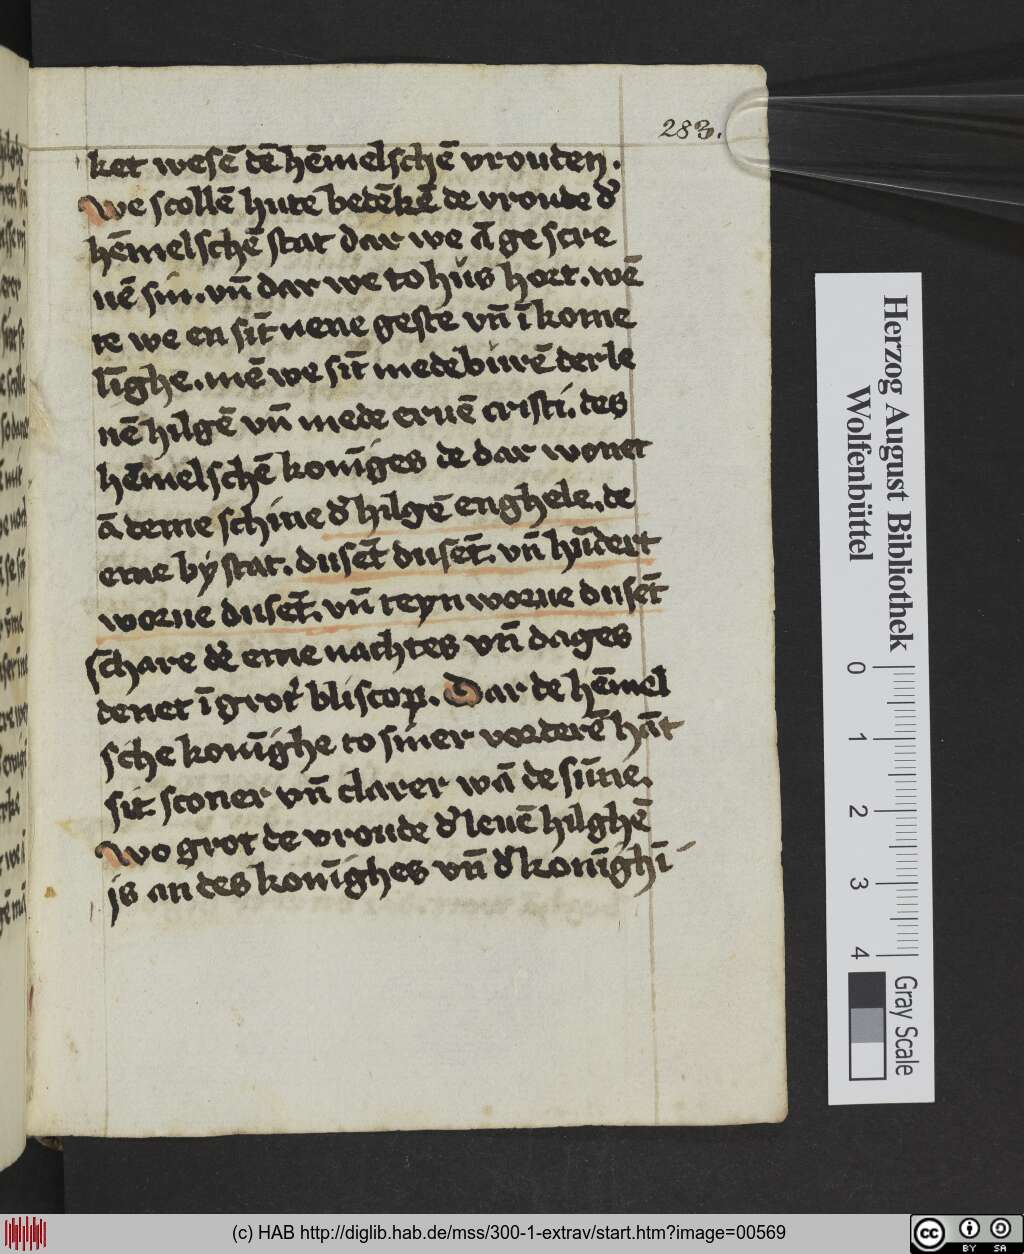 283.
ket wesē dē hēmelschē vrouden.
We scollē hute bedēkē de vroude d'
hēmelschē stat dar we ā ge scre
uē sin. vn̄ dar we to hus hort. wē
te we en sīt nene geste vn̄ ī kome
līghe. mē we sīt medebūrē der le
nē hilgē vn̄ mede eruē cristi. des
hēmelschē konīges de dar wonet
ā deme schine d' hilgē enghele. de
eme by stat. dusēt dusēt. vn̄ hūdert
worue dusēt. vn̄ teyn worue dusēt
schare dē eme nachtes vn̄ dages
denet ī grot' bliscop. Dar de hēmel
sche konīghe to siner vorderē hāt
sit sconer vn̄ clarer wā de sūne.
Wo grot de vroude d' leuē hilghē
is an des konīghes vn̄ d' konīghī
Herzog August Bibliothek
Wolfenbüttel
0 1 2 3 4
Gray Scale
(c) HAB http://diglib.hab.de/mss/300-1-extrav/start.htm?image=00569
cc BY SA